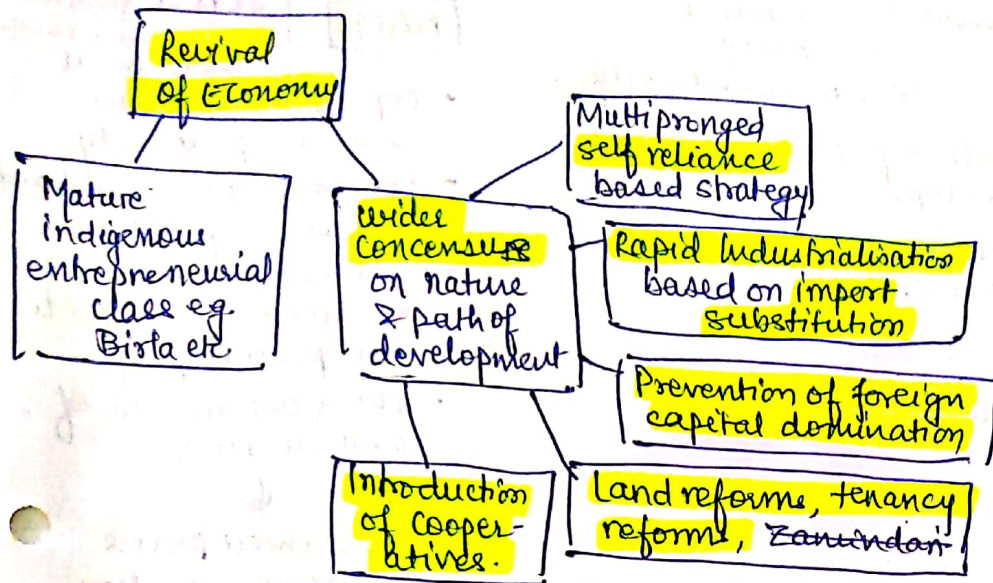 Revival
of Economy
Mature
indigenous
entrepreneurial
class eg.
Birla etc
wider
concensus
on nature
& path of
development
Multipronged
self reliance
based strategy
Rapid Industrialisation
based on import
substitution
Prevention of foreign
capital domination
Introduction
of cooper-
atives.
Land reforms, tenancy
reforms, Zamindari